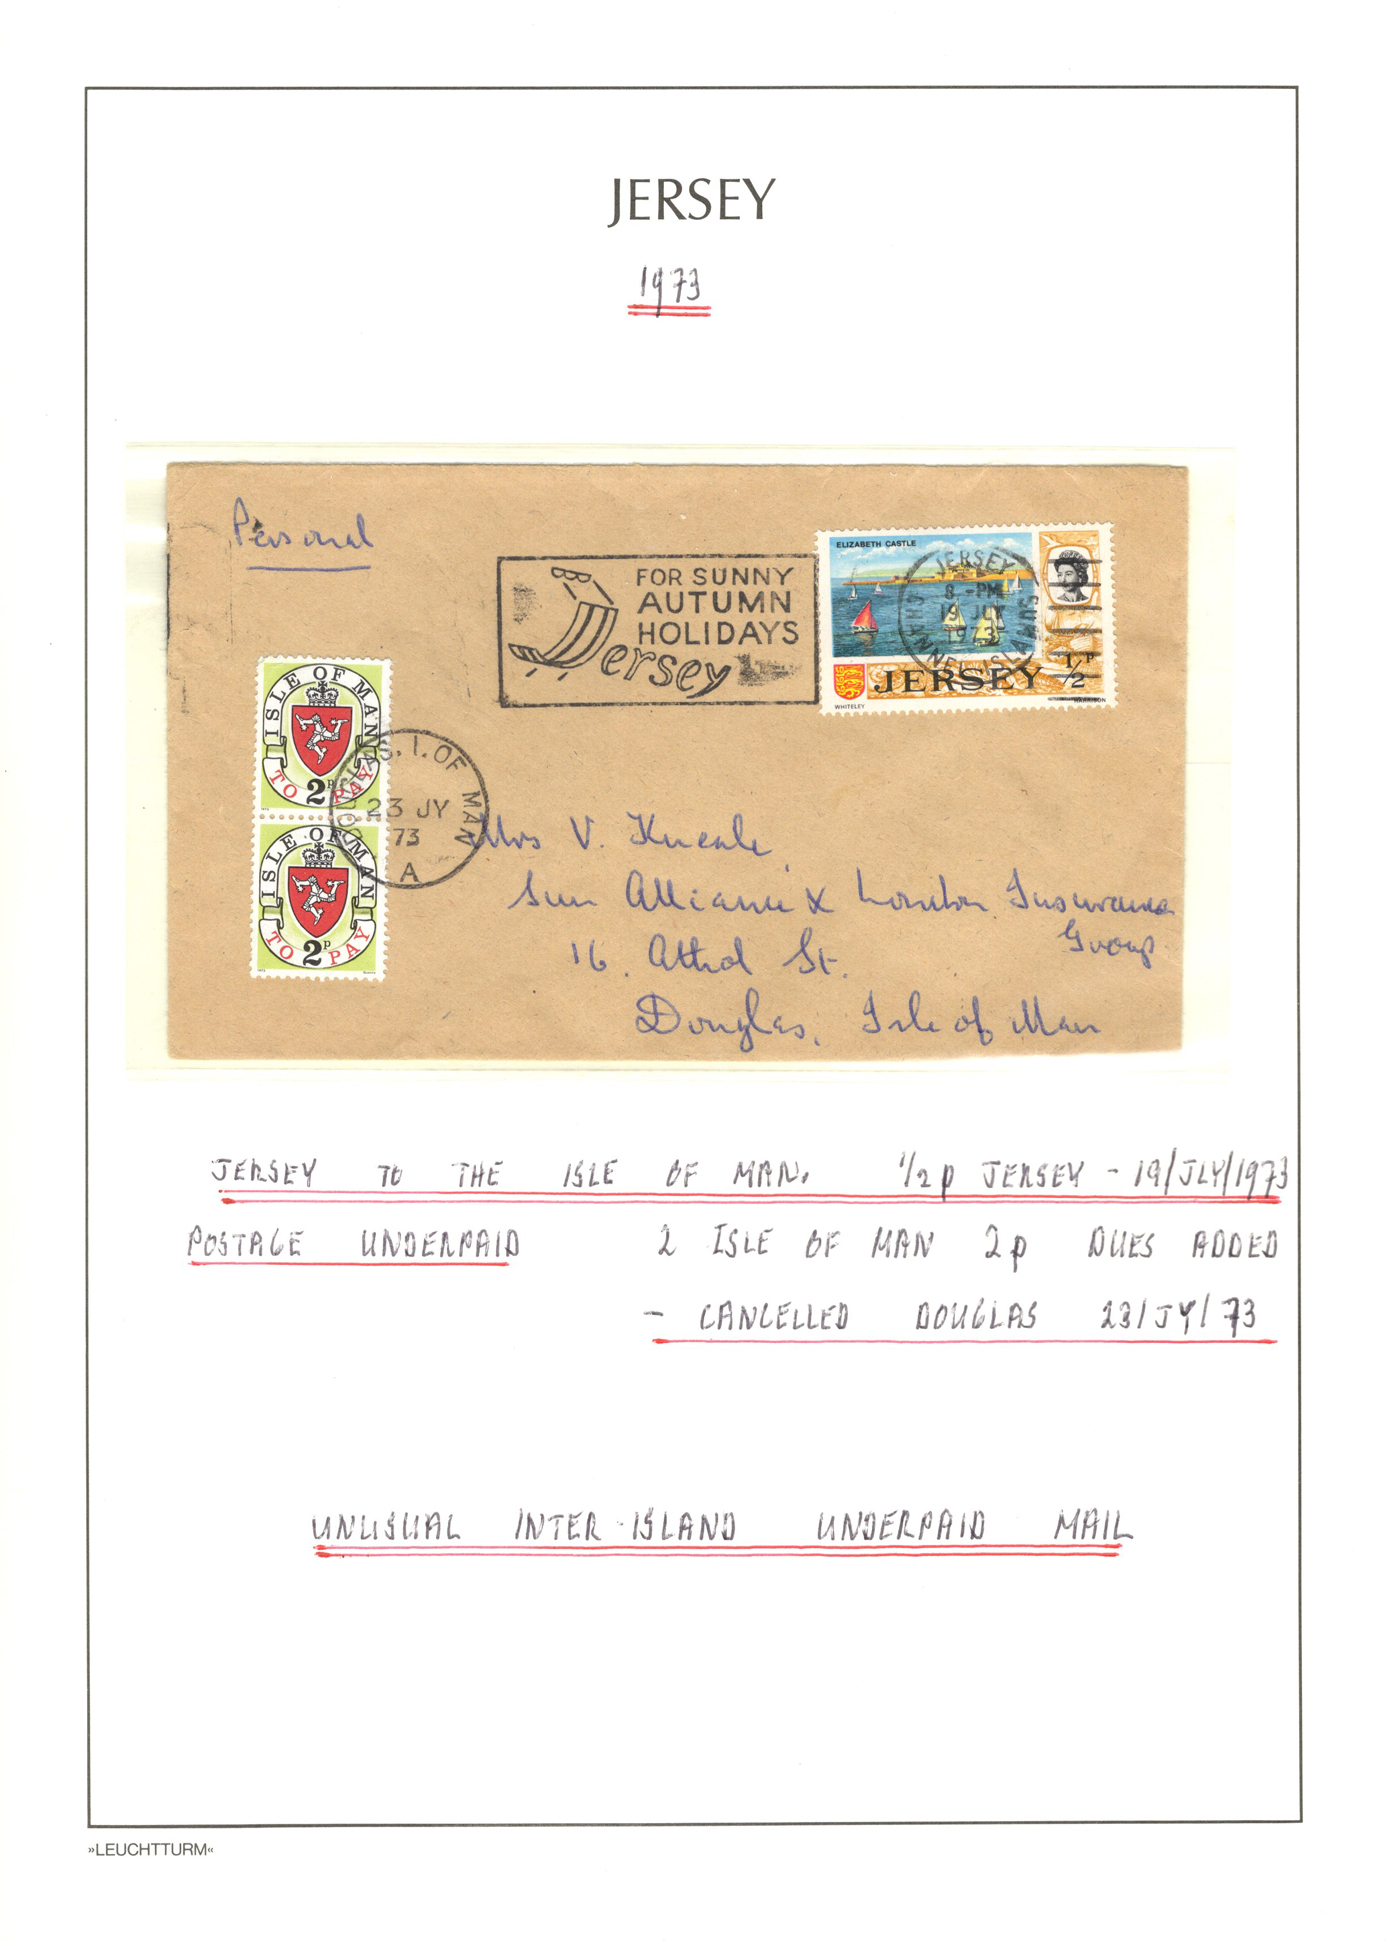 JERSEY
1973
Personal
FOR SUNNY
AUTUMN
HOLIDAYS
Jersey
ELIZABETH CASTLE
JERSEY
8 - PM
19 JLY
1973
CHANNEL ISLANDS
1/2 P
JERSEY
WHITELEY
HARRISON
ISLE OF MAN
2P
TO PAY
DOUGLAS. I. OF MAN
23 JY
73
A
ISLE OF MAN
2P
TO PAY
Mrs V. Kneale
Sun Alliance & London Insurance
Group
16. Athol St.
Douglas, Isle of Man
JERSEY TO THE ISLE OF MAN. 1/2p JERSEY - 19/JLY/1973
POSTAGE UNDERPAID 2 ISLE OF MAN 2p DUES ADDED
- CANCELLED DOUGLAS 23/JY/73
UNUSUAL INTER-ISLAND UNDERPAID MAIL
»LEUCHTTURM«